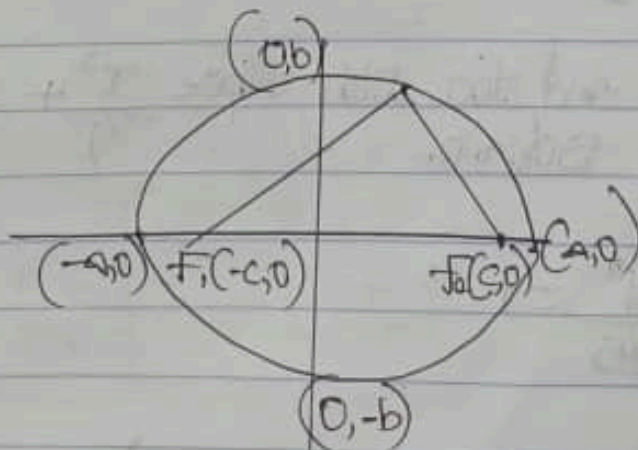 (0,b)
(-a,0) F₁(-c,0) F₂(c,0) (a,0)
(0,-b)